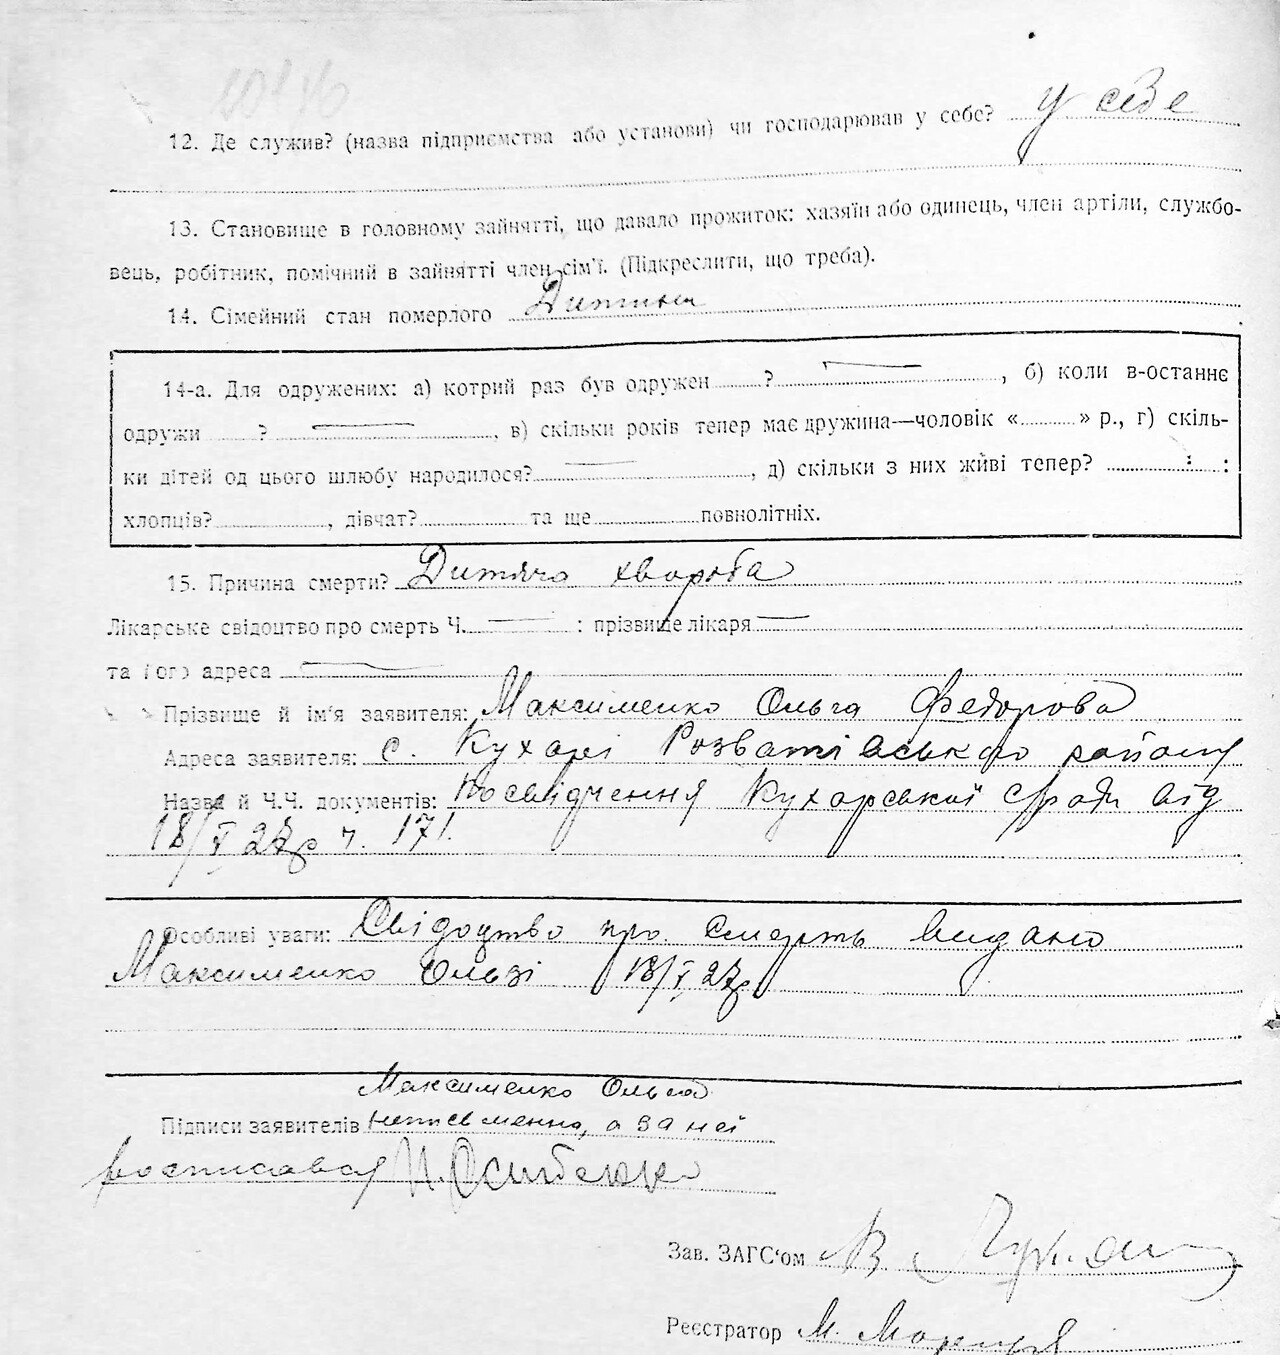 12. Де служив? (назва підприємства або установи) чи господарював у себе? у себе
13. Становище в головному зайнятті, що давало прожиток: хазяїн або одинець, член артіли, службо-
вець, робітник, помічний в зайнятті член сім'ї. (Підкреслити, що треба).
14. Сімейний стан померлого Дитина
14-а. Для одружених: а) котрий раз був одружен ? —, б) коли в-останнє
одружи ? —, в) скільки років тепер має дружина—чоловік « » р., г) скіль-
ки дітей од цього шлюбу народилося? —, д) скільки з них живі тепер? :
хлопців? , дівчат? та ще повнолітніх.
15. Причина смерти? Дитяча хвороба
Лікарське свідоцтво про смерть Ч. — : прізвище лікаря —
та його адреса —
Прізвище й ім'я заявителя: Максименко Ольга Федорова
Адреса заявителя: с. Кухарі Розватівського району
Назва й Ч.Ч. документів: Посвідчення Кухарської с/ради від
18/V 27р ч. 171.
Особливі уваги: Свідоцтво про смерть видано
Максименко Ользі 18/V 27р
Максименко Ольга
Підписи заявителів неписьменна, а за неї
росписався
Зав. ЗАГС'ом В
Реєстратор М.